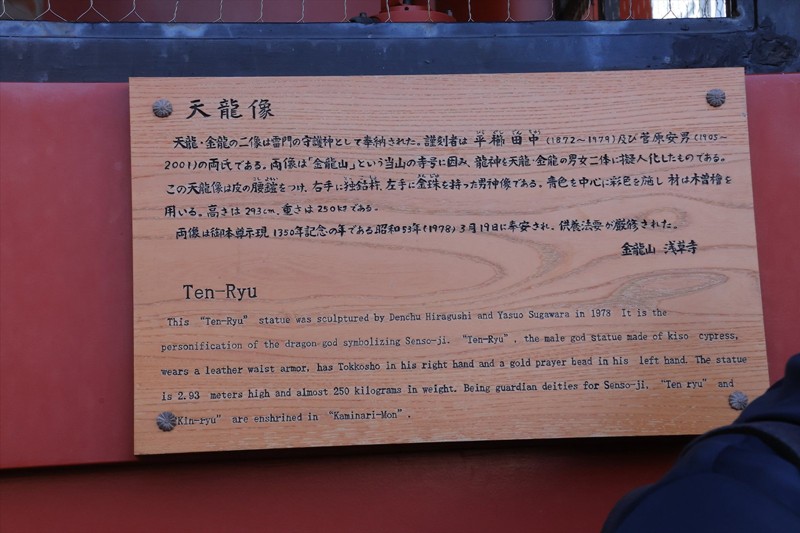 天龍像
天龍・金龍の二像は雷門の守護神として奉納された。謹刻者は 平櫛田中 (1872〜1979)及び菅原安男(1905〜
2001)の両氏である。両像は「金龍山」という当山の寺号に因み、龍神を天龍・金龍の男女二体に擬人化したものである。
この天龍像は皮の腰鎧をつけ、右手に独鈷杵、左手に金珠を持った男神像である。青色を中心に彩色を施し 材は木曽檜を
用いる。高さは293cm、重さは250kgである。
両像は御本尊示現1350年記念の年である昭和53年(1978)3月19日に奉安され、供養法要が厳修された。
金龍山 浅草寺
Ten-Ryu
This “Ten-Ryu” statue was sculptured by Denchu Hiragushi and Yasuo Sugawara in 1978 It is the
personification of the dragon god symbolizing Senso-ji. “Ten-Ryu”, the male god statue made of kiso cypress,
wears a leather waist armor, has Tokkosho in his right hand and a gold prayer bead in his left hand. The statue
is 2.93 meters high and almost 250 kilograms in weight. Being guardian deities for Senso-ji, “Ten ryu” and
“Kin-ryu” are enshrined in “Kaminari-Mon”.